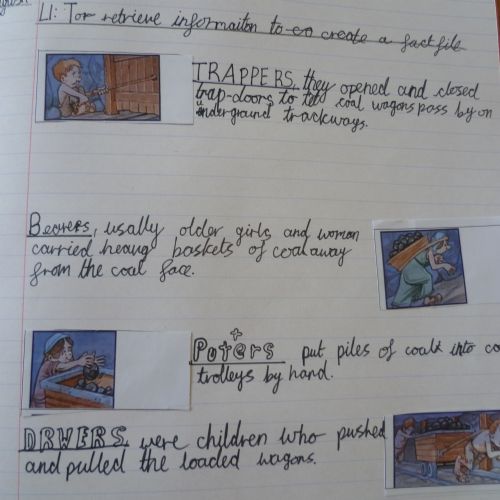 LI: Tor retrieve informaiton to co create a factfile
TRAPPERS they opened and closed
trap-doors to let coal wagons pass by on
underground trackways.
Bearers, usally older girls and woman
carried heavy baskets of coal away
from the coal face.
Potters put piles of coal into co
trolleys by hand.
DRWERS were children who pushed
and pulled the loaded wagons.